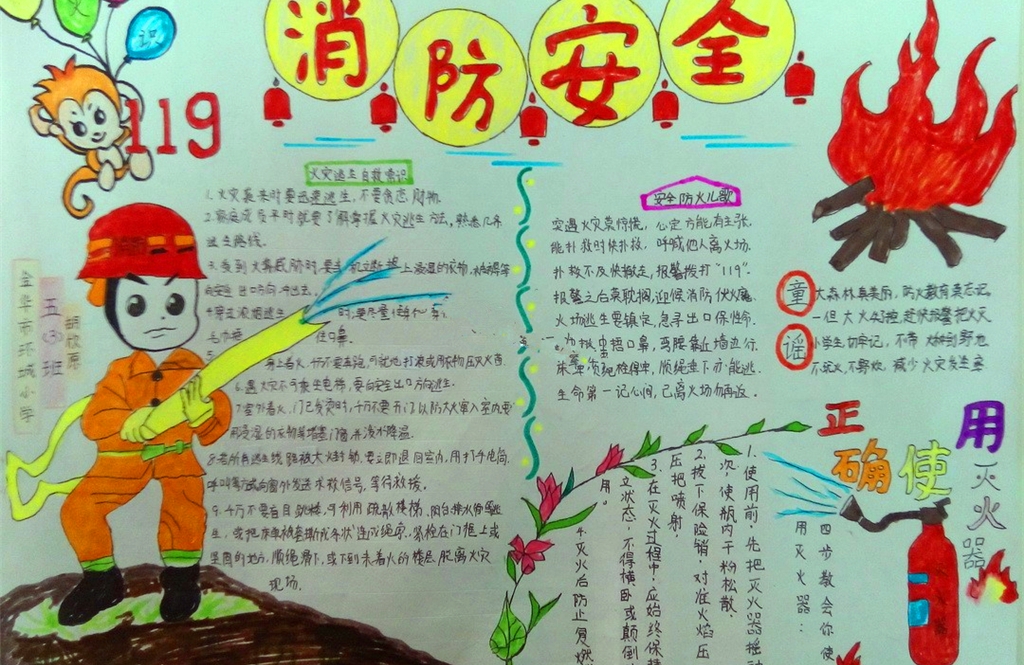 消防安全
识
119
火灾逃生自救常识
1.火灾袭来时要迅速逃生,不要贪恋财物.
2.家庭成员平时就要了解掌握火灾逃生方法,熟悉几条
逃生路线.
3.受到火势威胁时,要
上浸湿的衣物,
向安全出口方向冲出去.
4.穿过浓烟逃
时,要尽量使身体
5.
身上着火,千万不要奔跑,可就地打滚或用厚衣物压灭火苗.
6.遇火灾不可乘坐电梯,要向安全出口方向逃生.
7.室外着火,门已发烫时,千万不要开门,以防大火窜入室内,要
用浸湿的衣物等堵塞门窗,并泼水降温.
8.若所有逃生线路被大火封锁,要立即退回室内,用打手电筒.
呼叫等方式向窗外发送求救信号,等待救援.
9.千万不要盲目跳楼,可利用疏散楼梯,阳台排水管等逃
生,或把床单被套撕成条状连成绳索,紧栓在门框上或
坚固的地方,顺绳滑下,或下到未着火的楼层脱离火灾
现场.
金华市环城小学
五(3)班
胡欣原
安全防火儿歌
突遇火灾莫惊慌,心定方能有主张.
能扑救时快扑救,呼喊他人离火场.
扑救不及快撤走,报警拨打"119".
报警之后莫耽搁,迎候消防伏火魔.
火场逃生要镇定,急寻出口保性命.
捂口鼻,弯腰靠近墙边行.
床单
绳栓得牢,顺绳垂下亦能逃.
生命第一记心间,已离火场勿再返.
童谣
大森林真美丽,防火教育莫忘记.
一但大火
,赶快报警把火灭.
小学生切牢记,不带火种到野地
不玩火,不野炊,减少火灾发生率
正确使用灭火器
四步教会你使
用灭火器:
1.使用前,先把灭火器摇动
次,使瓶内干粉松散.
2.拔下保险销,对准火焰压
压把喷射.
3.在灭火过程中,应始终保持
立状态,不得横卧或颠倒
用.
4.灭火后防止复燃